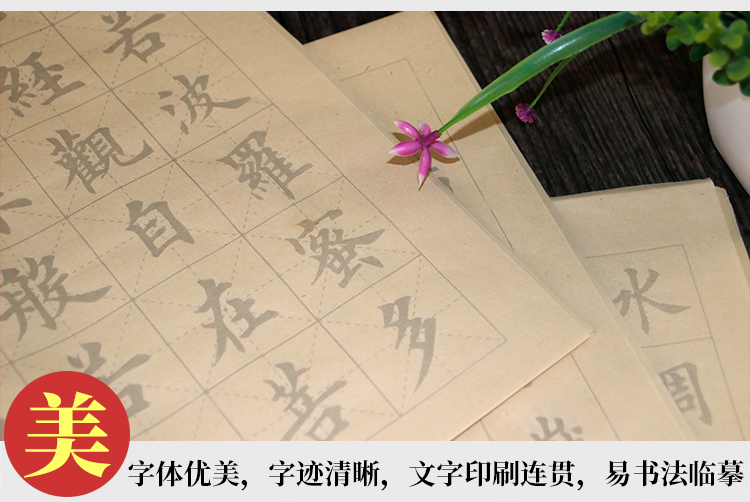 若波羅蜜多
經觀自在菩
般若
水
周
美
字体优美，字迹清晰，文字印刷连贯，易书法临摹